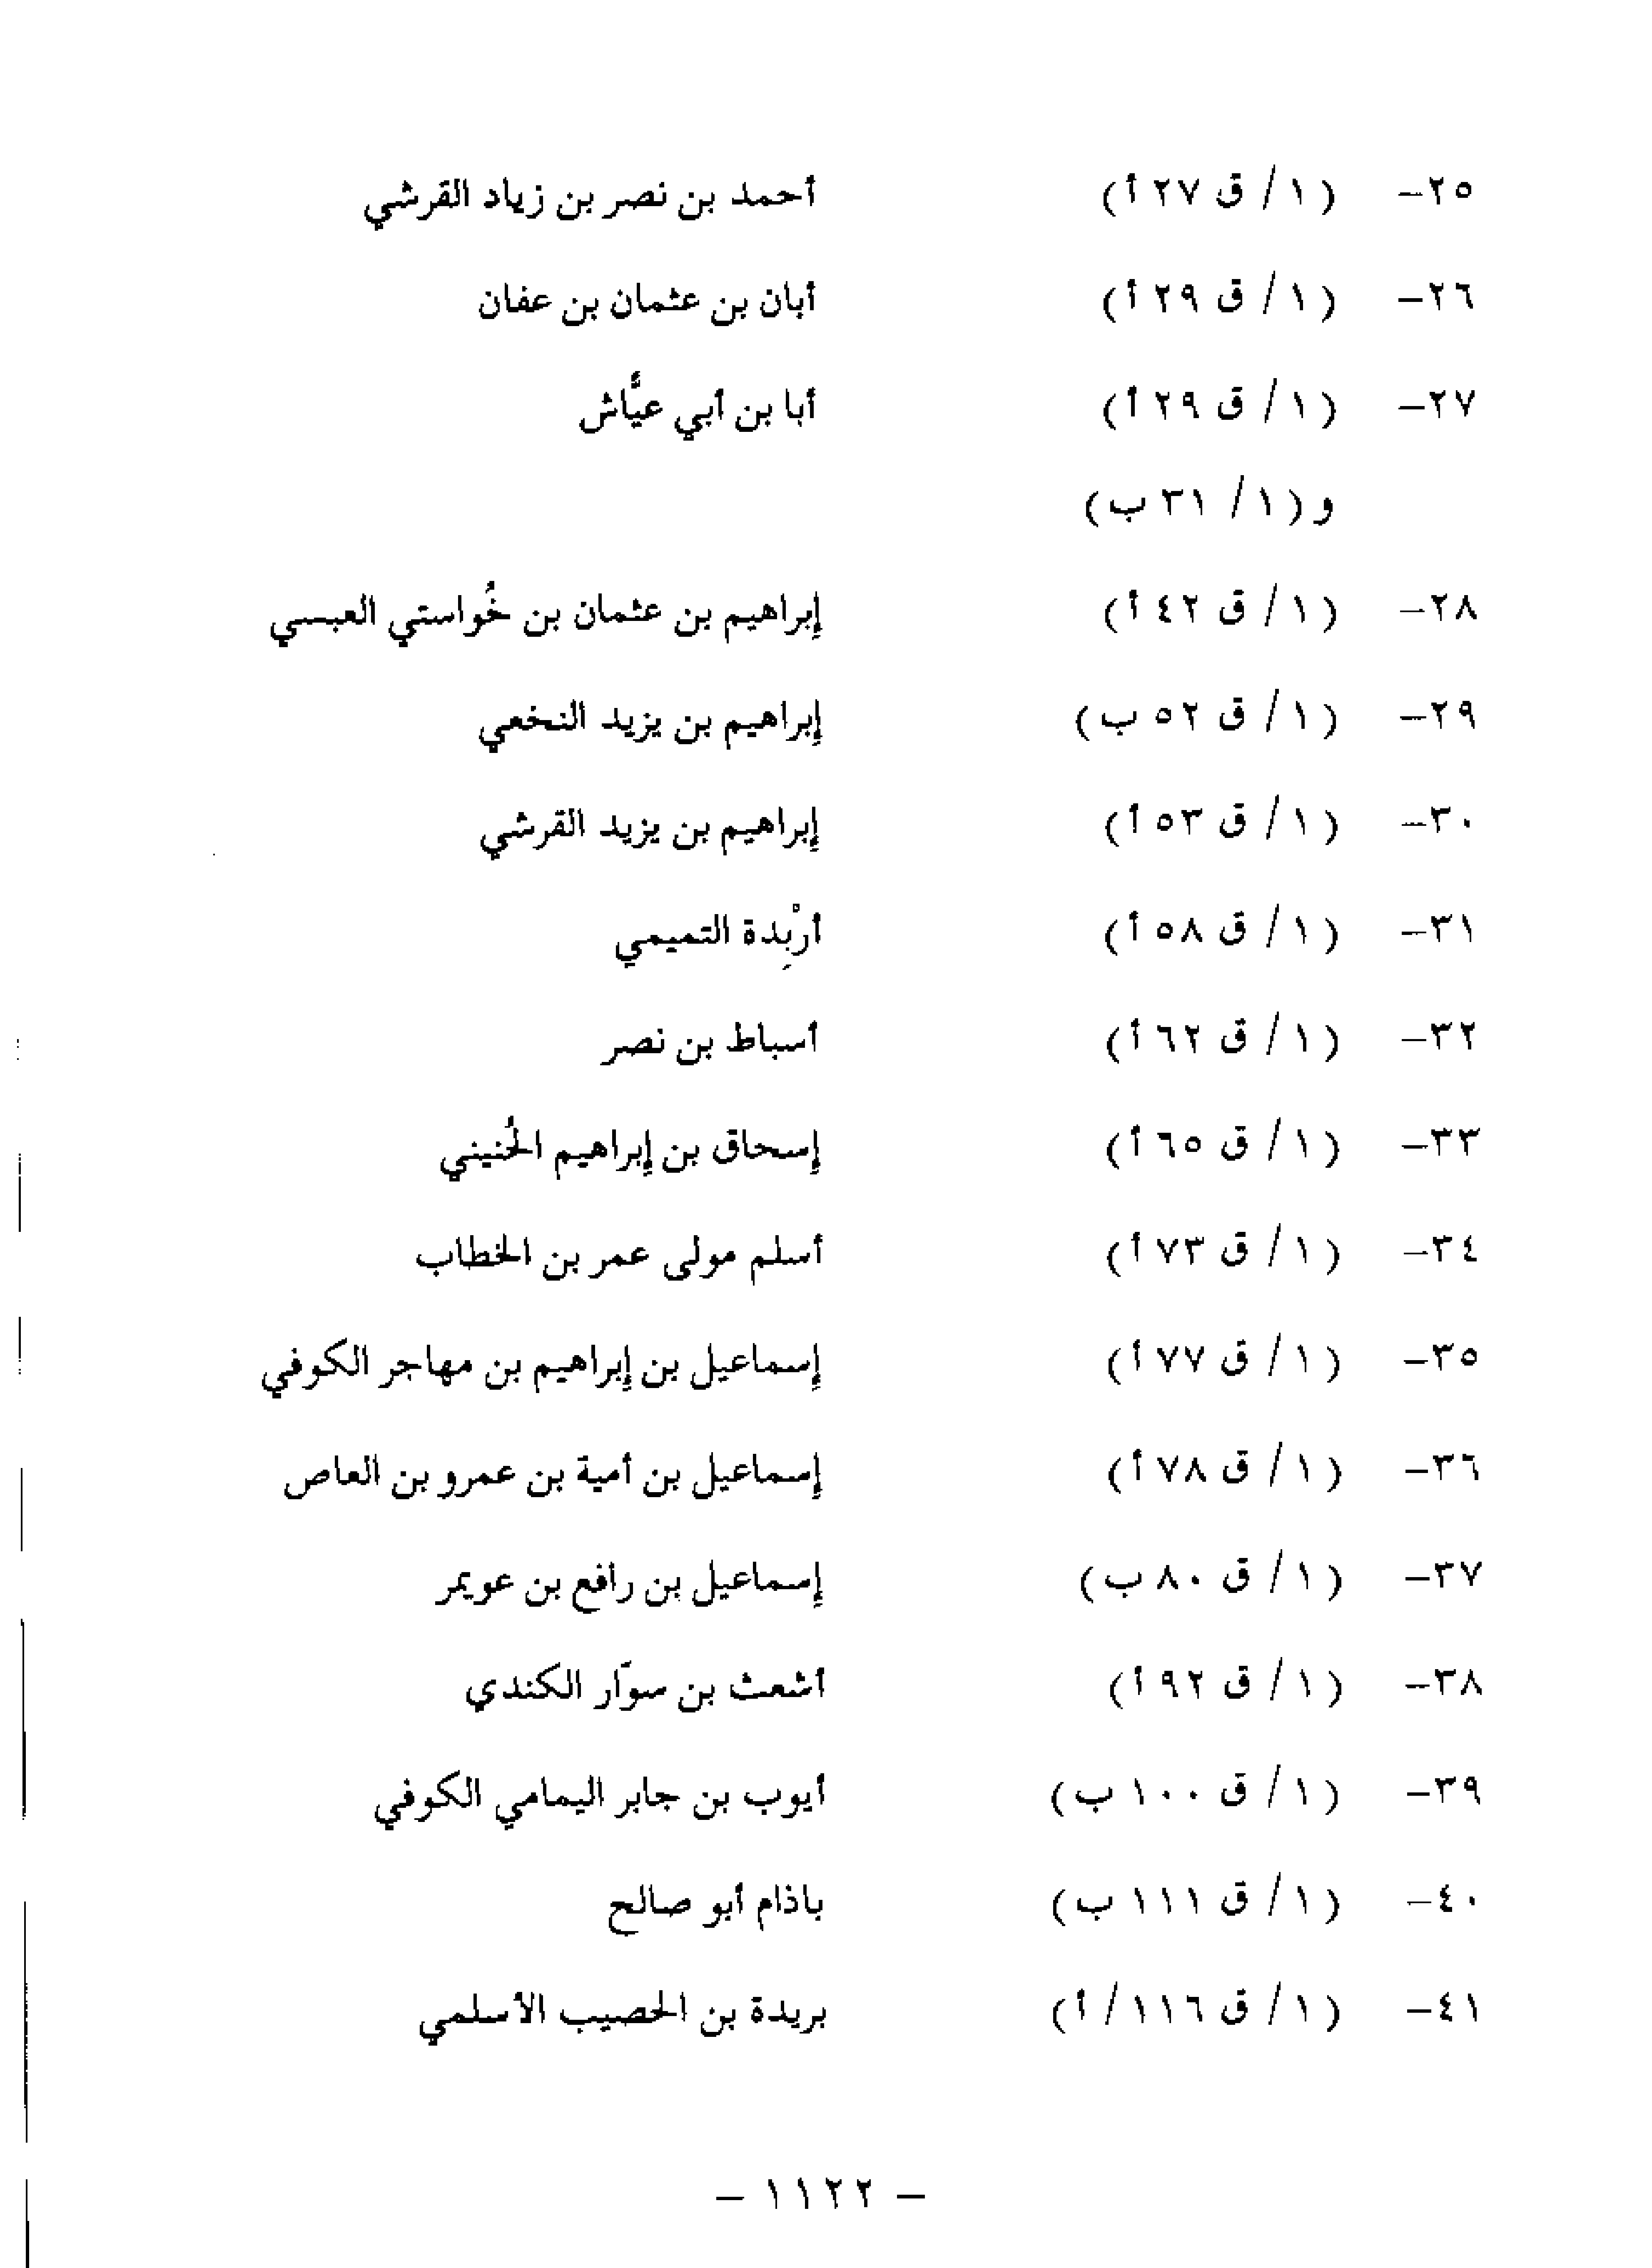 ٢٥- (١/ ق ٢٧ أ) أحمد بن نصر بن زياد القرشي
٢٦- (١/ ق ٢٩ أ) أبان بن عثمان بن عفان
٢٧- (١/ ق ٢٩ أ) أبا بن أبي عيَّاش
و (١/ ٣١ ب)
٢٨- (١/ ق ٤٢ أ) إبراهيم بن عثمان بن خُواستي العبسي
٢٩- (١/ ق ٥٢ ب) إبراهيم بن يزيد النخعي
٣٠- (١/ ق ٥٣ أ) إبراهيم بن يزيد القرشي
٣١- (١/ ق ٥٨ أ) أرْبِدة التميمي
٣٢- (١/ ق ٦٢ أ) أسباط بن نصر
٣٣- (١/ ق ٦٥ أ) إسحاق بن إبراهيم الحُنيني
٣٤- (١/ ق ٧٣ أ) أسلم مولى عمر بن الخطاب
٣٥- (١/ ق ٧٧ أ) إسماعيل بن إبراهيم بن مهاجر الكوفي
٣٦- (١/ ق ٧٨ أ) إسماعيل بن أمية بن عمرو بن العاص
٣٧- (١/ ق ٨٠ ب) إسماعيل بن رافع بن عويمر
٣٨- (١/ ق ٩٢ أ) أشعث بن سوّار الكندي
٣٩- (١/ ق ١٠٠ ب) أيوب بن جابر اليمامي الكوفي
٤٠- (١/ ق ١١١ ب) باذام أبو صالح
٤١- (١/ ق ١١٦/ أ) بريدة بن الحصيب الأسلمي
- ١١٢٢ -